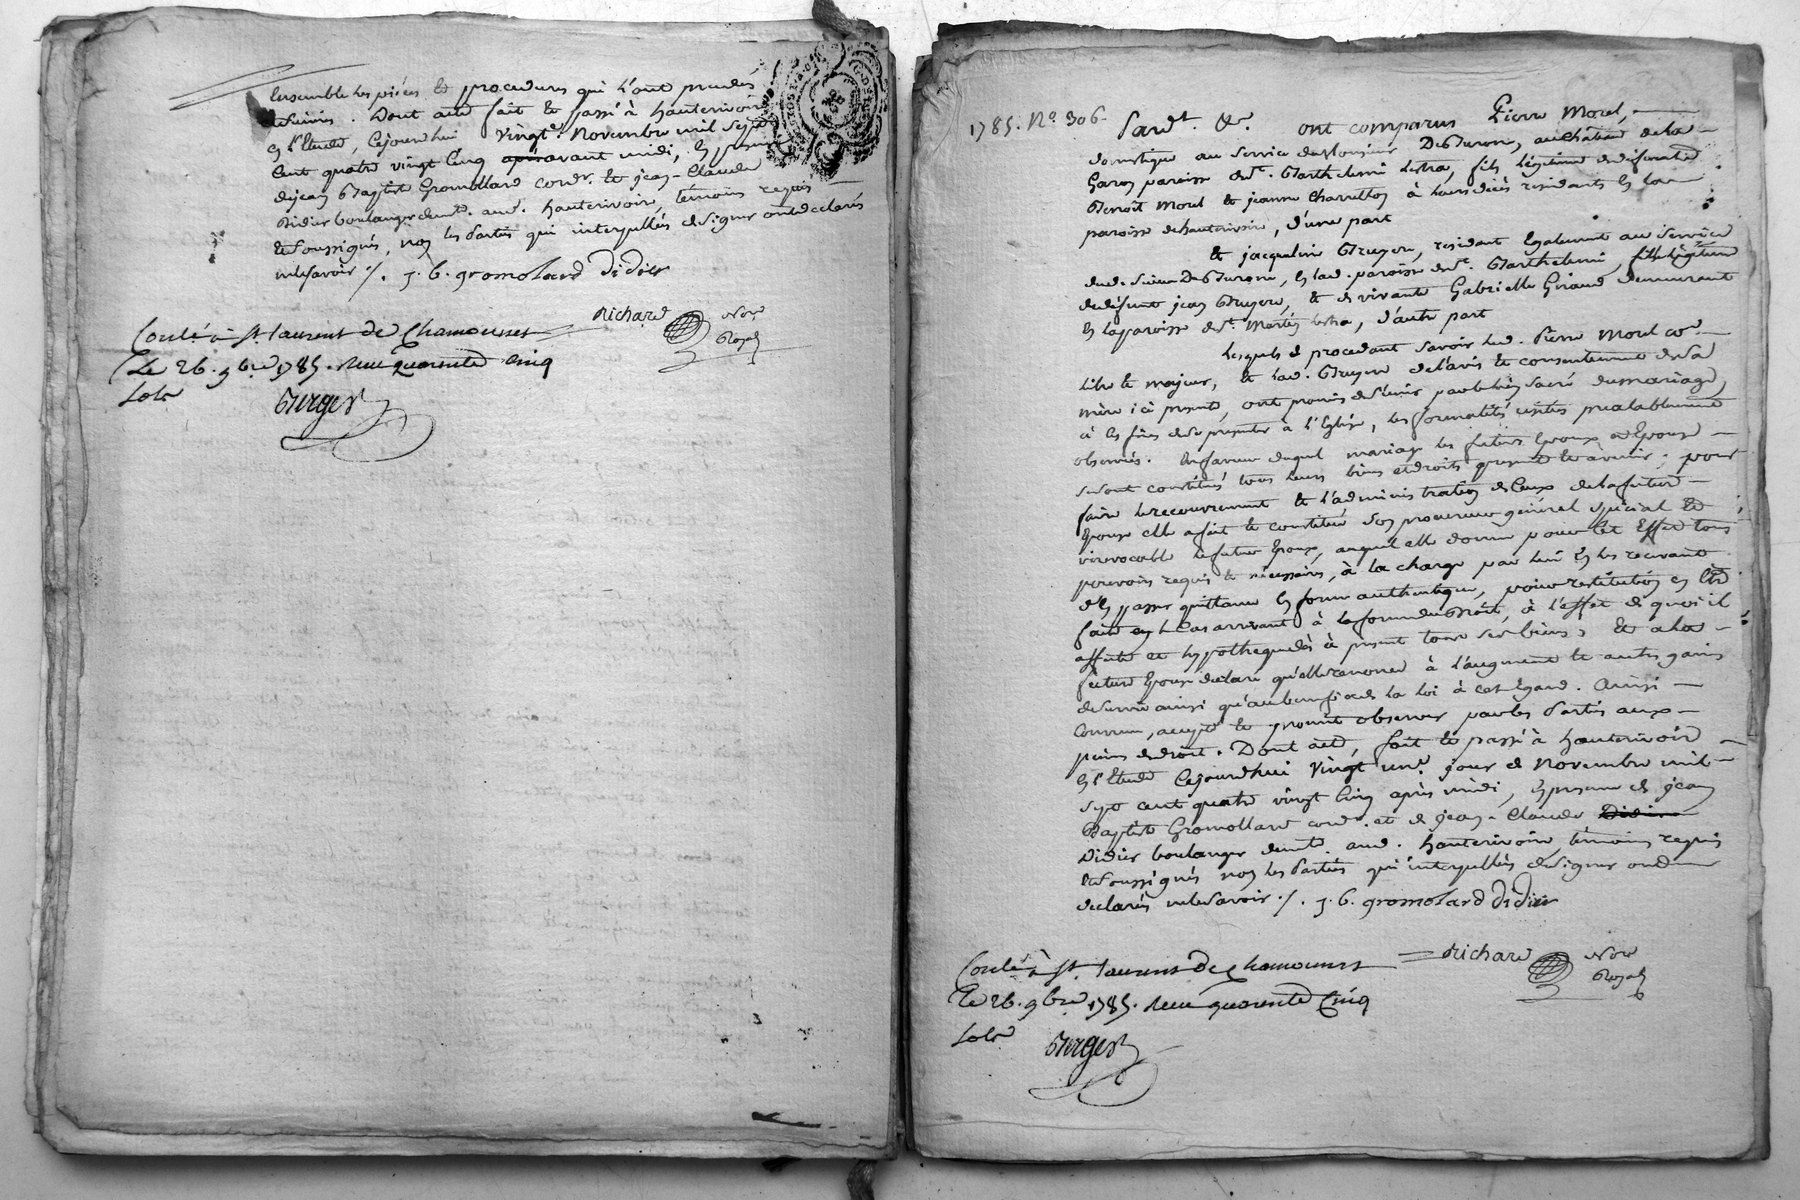 Ensemble les pièces et procedures qui l'ont precedés
et suivis. Dont acte fait et passé à hauterivoire
en l'Etude, Cejourdhui vingt. Novembre mil sept
Cent quatre vingt cinq après avant midi, En presence
de jean Baptiste Gromollard cordr. et jean-Claude
Didier boulanger demt. aud. hauterivoire, temoins requis
et soussignés, non les Parties qui interpellés de signer ont declarés
ne le savoir ./. j. b. gromolard Didier
Richard Nore
Royal
Conlé à St. laurent de Chamousset
Le 26. 9bre 1785. Reçu quarente Cinq
sols
Berger
1785. No. 306.
Pardt. &c. ont comparus Pierre Morel,
domestique au service de Monsieur DeBuronne, au Château de la
Garon paroisse de St. Barthelemi Lestra, fils légitime de defunt
Benoît Morel et jeanne Charretton à leurs décès residants en la
paroisse de hauterivoire, d'une part
Et jacqueline Bruyere, residant Egalement au service
dud. Sieur DeBuronne, en lad. paroisse de St. Barthelemi, fille légitime
de defunt jean Bruyere, et de vivante Gabrielle Giraud demeurante
en la paroisse de St. Martin lestra, d'autre part
Lesquels de procedant savoir led. Pierre Morel co
libre et majeur, et lad. Bruyere de l'avis et consentement de sa
mère ici presente, ont promis de s'unir par le lien sacré du mariage,
à ces fins de se presenter à l'Eglise, les formalités usitées prealablement
observées. En faveur duquel mariage les futurs Epoux et Epouse
se sont constitués tous leurs biens et droits present et avenir; pour
faire le recouvrement et l'administration de Ceux de la future
Epouse elle a fait et constitué son procureur général special et
irrevocable le futur Epoux, auquel elle donne pour cet Effet tous
pouvoirs requis et necessaires, à la charge par lui en les recevant
d'en passer quittance en forme authentique, pour restitution en Etre
faite en tCas arrivant à la forme du Droit, à l'effet de quoi il
affecte et hypotheque dès à present tous ses biens; Et a la
future Epouse declaré qu'elle renonce à l'augment et autres gains
de survie ainsi qu'au benefice de la loi à cet Egard. Ainsi
Convenu, accepté et promis observer par les Parties aux
peines de droit. Dont acte, fait et passé à hauterivoire
en l'Etude Cejourdhui Vingt un. jour de Novembre mil
sept cent quatre vingt Cinq après midi, En presence de jean
Baptiste Gromollard cordr. et de jean-Claude Didier
Didier boulanger demt. aud. hauterivoire, temoins requis
et soussignés non les Parties qui interpellés de signer ont
declarés ne le savoir ./. j. b. gromolard Didier
Richard Nore
Royal
Conlé à St. laurent de Chamousset
Le 26. 9bre 1785. Reçu quarente Cinq
sols
Berger